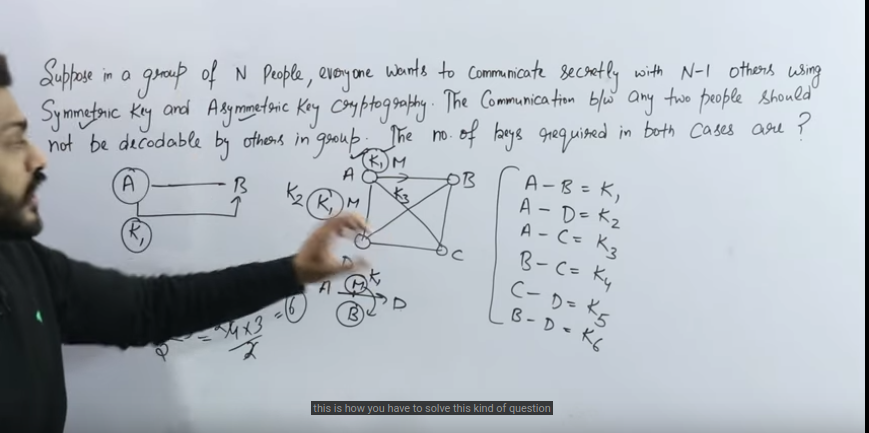 Suppose in a group of N People, everyone wants to communicate secretly with N-1 others using
Symmetric Key and Asymmetric Key cryptography. The Communication b/w any two people should
not be decodable by others in group. The no. of keys required in both Cases are ?
K₁ M
A B
A B
K₂ K₁ M
K₃
K₁
C
D
A M K₁
B D
= 4×3 = 6
2
A - B = K₁
A - D = K₂
A - C = K₃
B - C = K₄
C - D = K₅
B - D = K₆
this is how you have to solve this kind of question